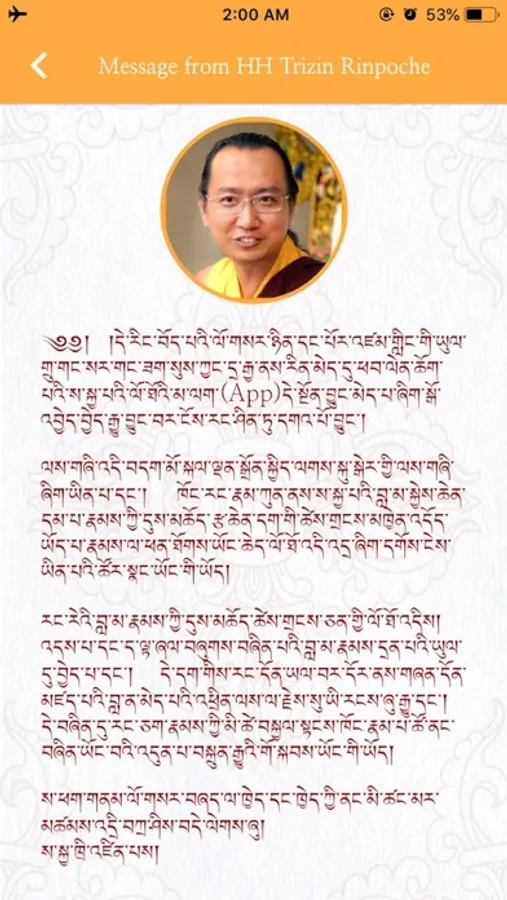 2:00 AM
53%
Message from HH Trizin Rinpoche
༄༅། །དེ་རིང་བོད་པའི་ལོ་གསར་ཉིན་དང་པོར་འཛམ་གླིང་གི་ཡུལ་
གྲུ་གང་སར་གང་ཟག་སུས་ཀྱང་དྲ་རྒྱ་ནས་རིན་མེད་དུ་ཕབ་ལེན་ཆོག་
པའི་ས་སྐྱ་པའི་ལོ་ཐོའི་མ་ལག་(App)དེ་སྔོན་བྱུང་མེད་པ་ཞིག་སྒོ་
འབྱེད་བྱེད་རྒྱུ་བྱུང་བར་ངོས་རང་ཤིན་ཏུ་དགའ་པོ་བྱུང་།
ལས་གཞི་འདི་བདག་མོ་སྐལ་ལྡན་སྒྲོན་སྐྱིད་ལགས་སྐུ་སྒེར་གྱི་ལས་གཞི་
ཞིག་ཡིན་པ་དང་། ཁོང་རང་རྣམ་ཀུན་ནས་ས་སྐྱ་པའི་བླ་མ་སྐྱེས་ཆེན་
དམ་པ་རྣམས་ཀྱི་དུས་མཆོད་རྩ་ཆེན་དག་གི་ཚེས་གྲངས་མཁྱེན་འདོད་
ཡོད་པ་རྣམས་ལ་ཕན་ཐོགས་ཡོང་ཆེད་ལོ་ཐོ་འདི་འདྲ་ཞིག་དགོས་ངེས་
ཡིན་པའི་ཚོར་སྣང་ཡོང་གི་ཡོད།
རང་རེའི་བླ་མ་རྣམས་ཀྱི་དུས་མཆོད་ཚེས་གྲངས་ཅན་གྱི་ལོ་ཐོ་འདིས།
འདས་པ་དང་ད་ལྟ་ཞལ་བཞུགས་བཞིན་པའི་བླ་མ་རྣམས་དྲན་པའི་ཡུལ་
དུ་བྱེད་པ་དང་། དེ་དག་གིས་རང་དོན་ཡལ་བར་དོར་ནས་གཞན་དོན་
མཛད་པའི་བླ་ན་མེད་པའི་འཕྲིན་ལས་ལ་རྗེས་སུ་ཡི་རངས་ཞུ་རྒྱུ་དང་།
དེ་བཞིན་དུ་རང་ཅག་རྣམས་ཀྱི་མི་ཚེ་བསྐྱལ་སྟངས་ཁོང་རྣམ་པ་ཚོ་ནང་
བཞིན་ཡོང་བའི་འདུན་པ་བསྐྲུན་རྒྱུའི་གོ་སྐབས་ཡོང་གི་ཡོད།
ས་ཕག་གནམ་ལོ་གསར་བཞད་ལ་ཁྱེད་དང་ཁྱེད་ཀྱི་ནང་མི་ཚང་མར་
མཚམས་འདྲི་བཀྲ་ཤིས་བདེ་ལེགས་ཞུ།
ས་སྐྱ་ཁྲི་འཛིན་པས།